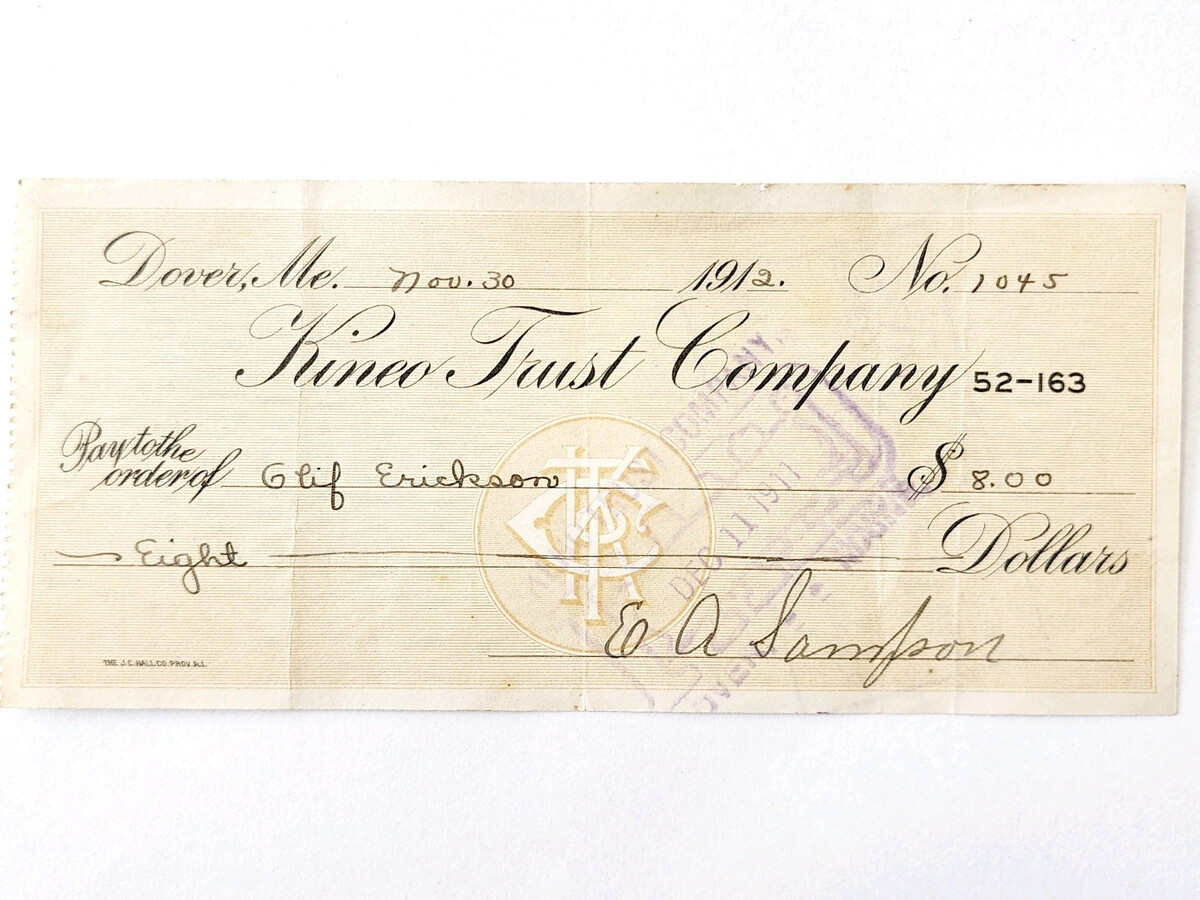 Dover, Me. Nov. 30 1912. No. 1045
Kineo Trust Company 52-163
Pay to the
order of Olif Erickson $ 8.00
Eight Dollars
E A Sampson
THE J.C. HALL CO. PROV. R.I.
KTC
COMPANY,
DEC 11 1911